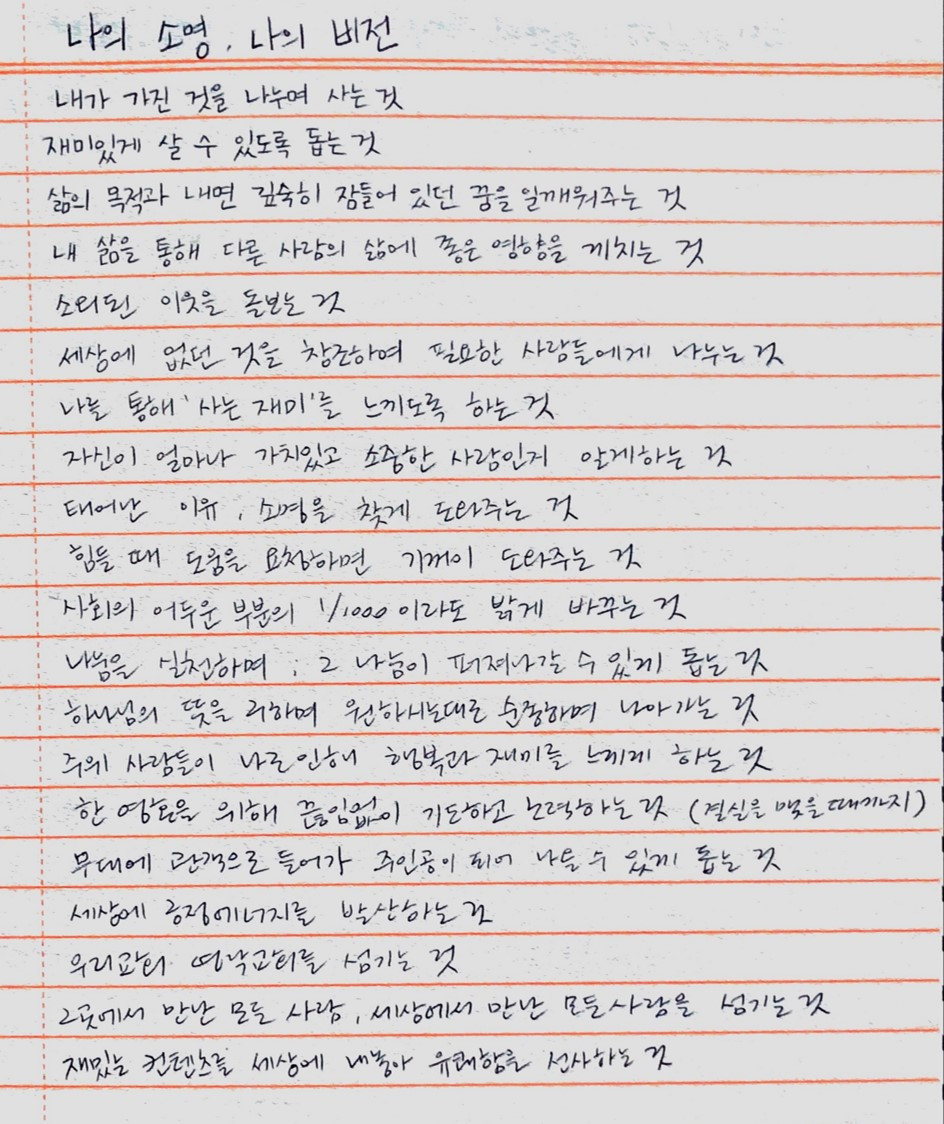 나의 소명, 나의 비전
내가 가진 것을 나누며 사는 것
재미있게 살 수 있도록 돕는 것
삶의 목적과 내면 깊숙히 잠들어 있던 꿈을 일깨워주는 것
내 삶을 통해 다른 사람의 삶에 좋은 영향을 끼치는 것
소외된 이웃을 돌보는 것
세상에 없던 것을 창조하여 필요한 사람들에게 나누는 것
나를 통해 '사는 재미'를 느끼도록 하는 것
자신이 얼마나 가치있고 소중한 사람인지 알게하는 것
태어난 이유, 소명을 찾게 도와주는 것
힘들 때 도움을 요청하면 기꺼이 도와주는 것
사회의 어두운 부분의 1/1000 이라도 밝게 바꾸는 것
나눔을 실천하며, 그 나눔이 퍼져나갈 수 있게 돕는 것
하나님의 뜻을 구하며 원하시는대로 순종하며 나아가는 것
주위 사람들이 나로인해 행복과 재미를 느끼게 하는 것
한 영혼을 위해 끊임없이 기도하고 노력하는 것 (결실을 맺을 때까지)
무대에 관객으로 들어가 주인공이 되어 나올 수 있게 돕는 것
세상에 긍정에너지를 발산하는 것
우리교회 영락교회를 섬기는 것
그곳에서 만난 모든 사람, 세상에서 만난 모든 사람을 섬기는 것
재밌는 컨텐츠를 세상에 내놓아 유쾌함을 선사하는 것